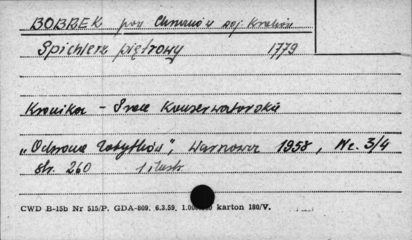 BOBREK pow Chrzanów woj. Kraków
Spichlerz piętrowy 1779
Kronika - Prace Konserwatorskie
"Ochrona Zabytków", Warszawa 1958, Nr. 3/4
str. 260 1 ilustr
CWD B-15b Nr 515/P. GDA-809. 6.3.59. karton 180/V.